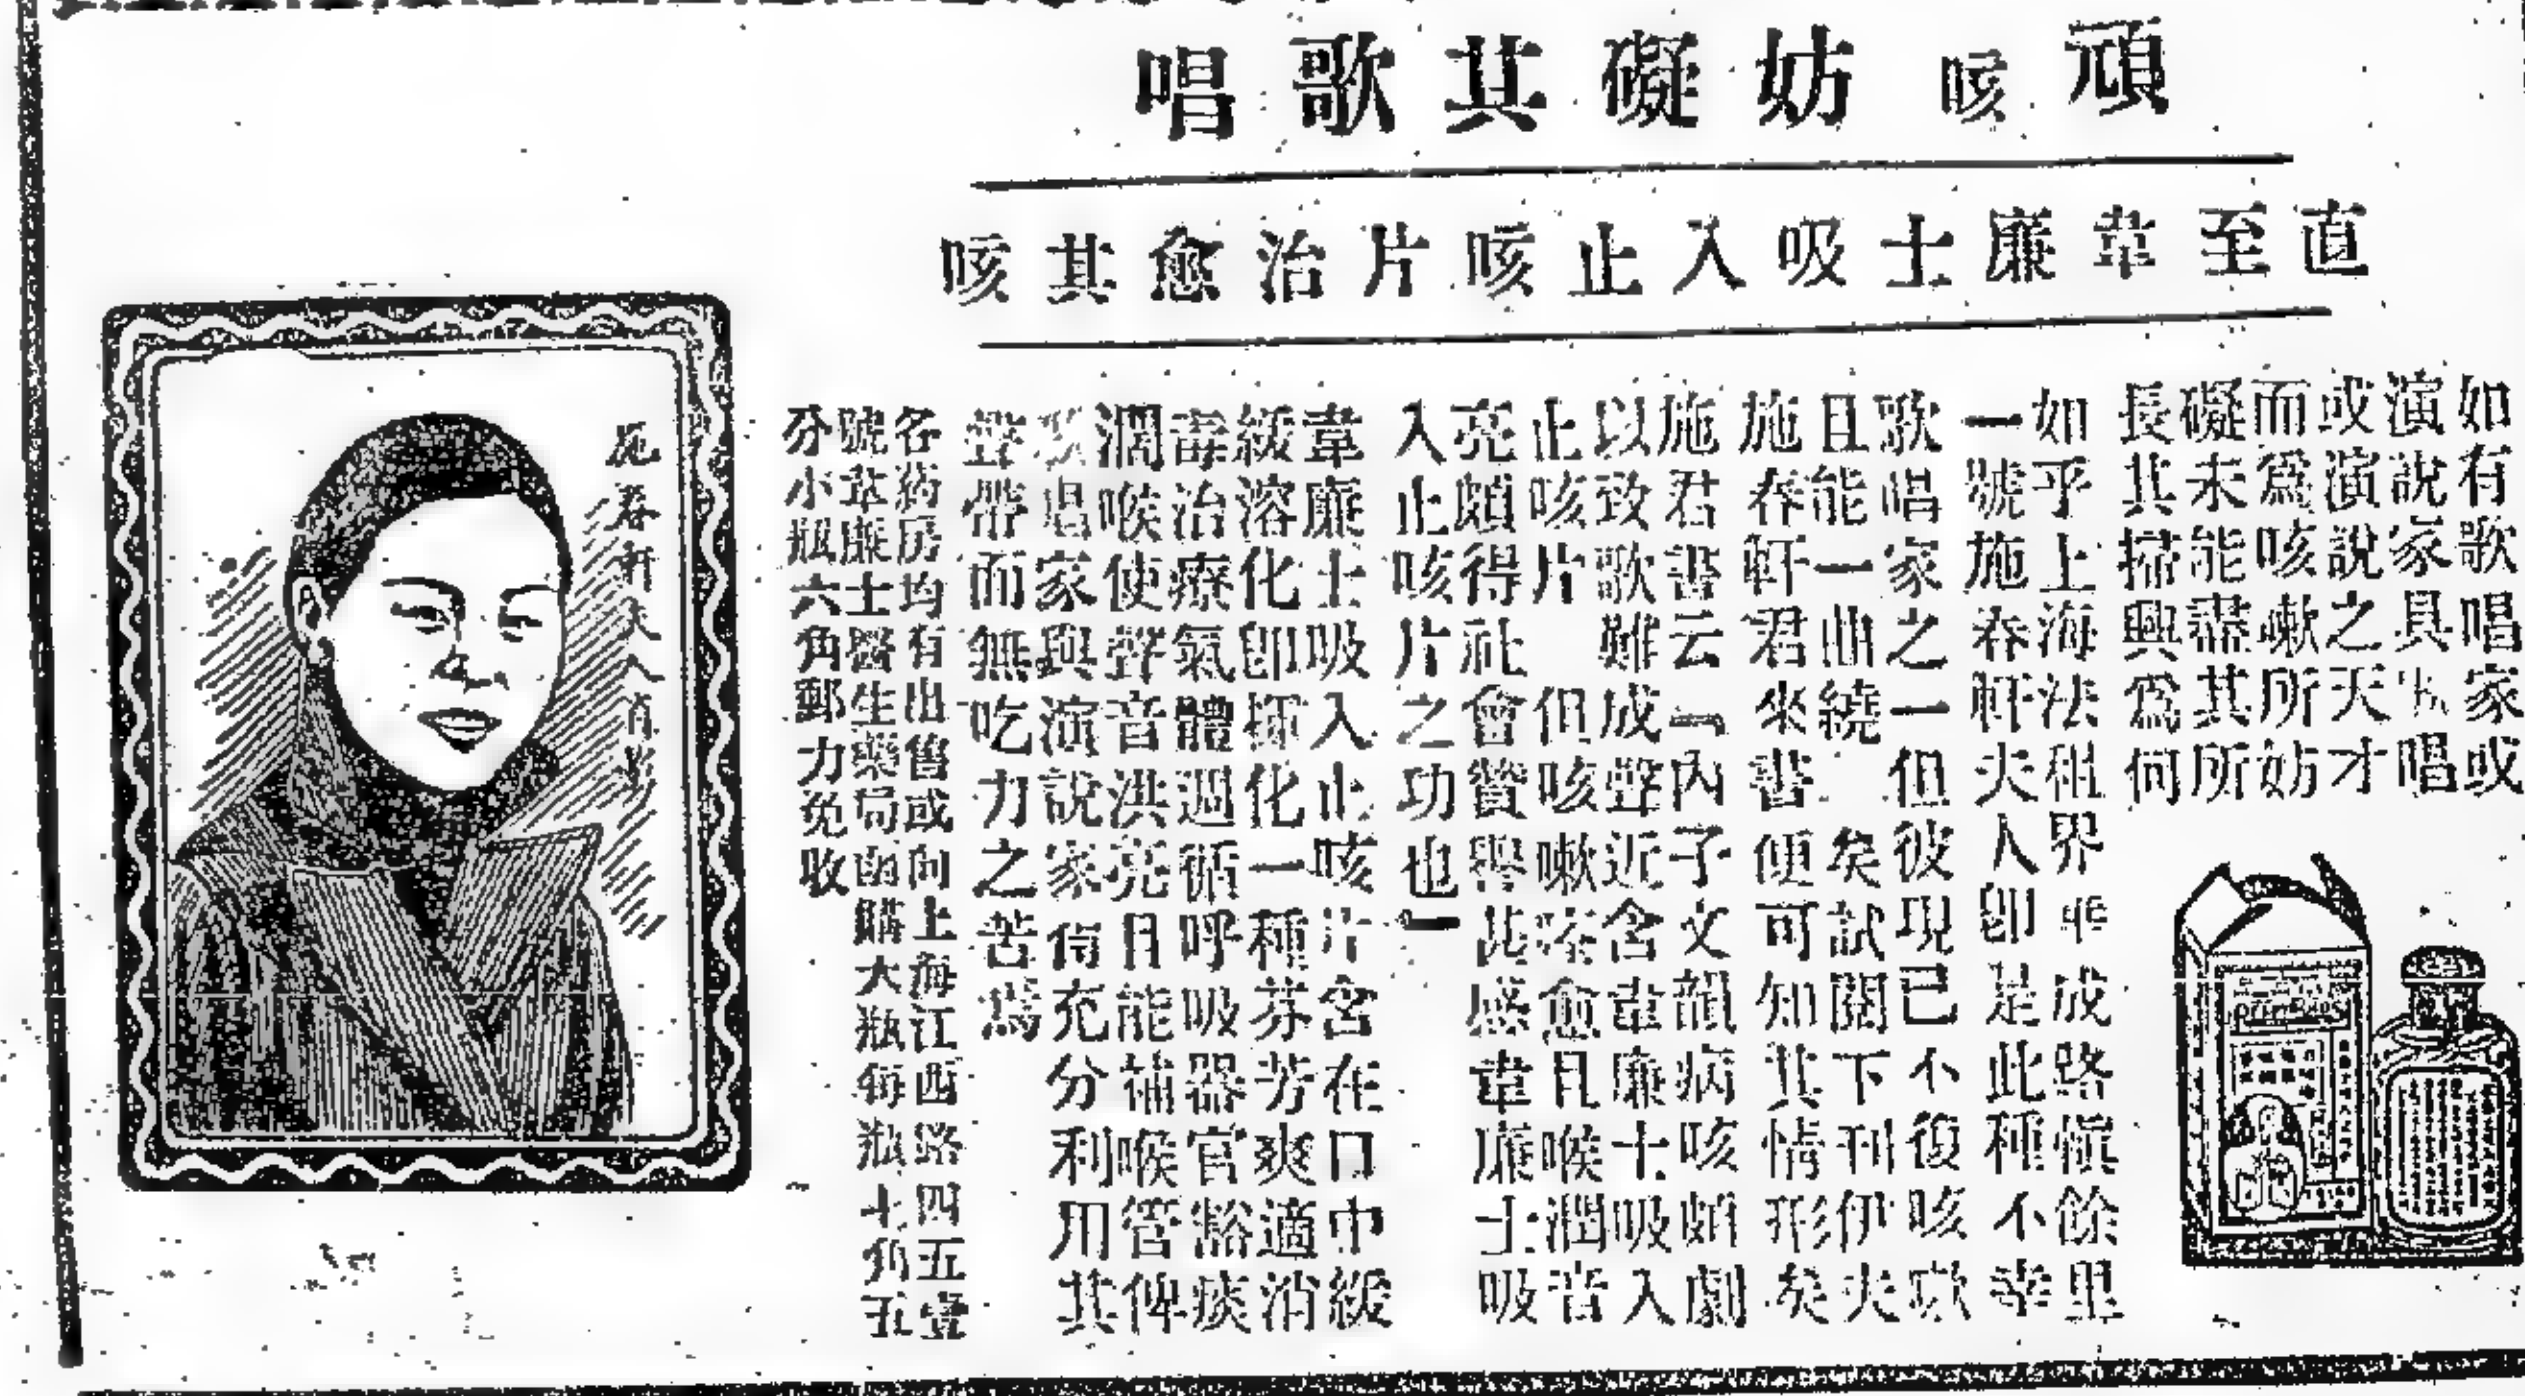 頑咳妨礙其歌唱
直至韋廉士吸入止咳片治愈其咳
如有歌唱家或
演說家具歌唱
或演說之天才
而爲咳嗽所妨
礙未能盡其所
長其掃興爲何
如乎上海法租界成路愼餘里
一號施春軒夫人卽是此種不幸
歌唱家之一但彼現已不復咳嗽
且能一曲繞矣試閱下刊伊夫
施春軒君來書便可知其情形矣
施君書云「內子文韻病咳頗劇
以致歌難成聲近含韋廉士吸入
止咳片 但咳嗽愈且喉潤音
亮頗得社會贊譽此感韋廉士吸
入止咳片之功也」
韋廉士吸入止咳片含在口中緩
緩溶化卽揮化一種芬芳爽適消
毒治療氣體週循呼吸器官豁痰
潤喉使聲音洪亮且能補喉管俾
歌唱家與演說家得充分利用其
聲帶而無吃力之苦焉
各藥房均有出售或向上海江西路四五壹
號韋廉士醫生藥局函購大瓶每瓶七角五
分小瓶六角郵力免收
施春軒夫人肖影